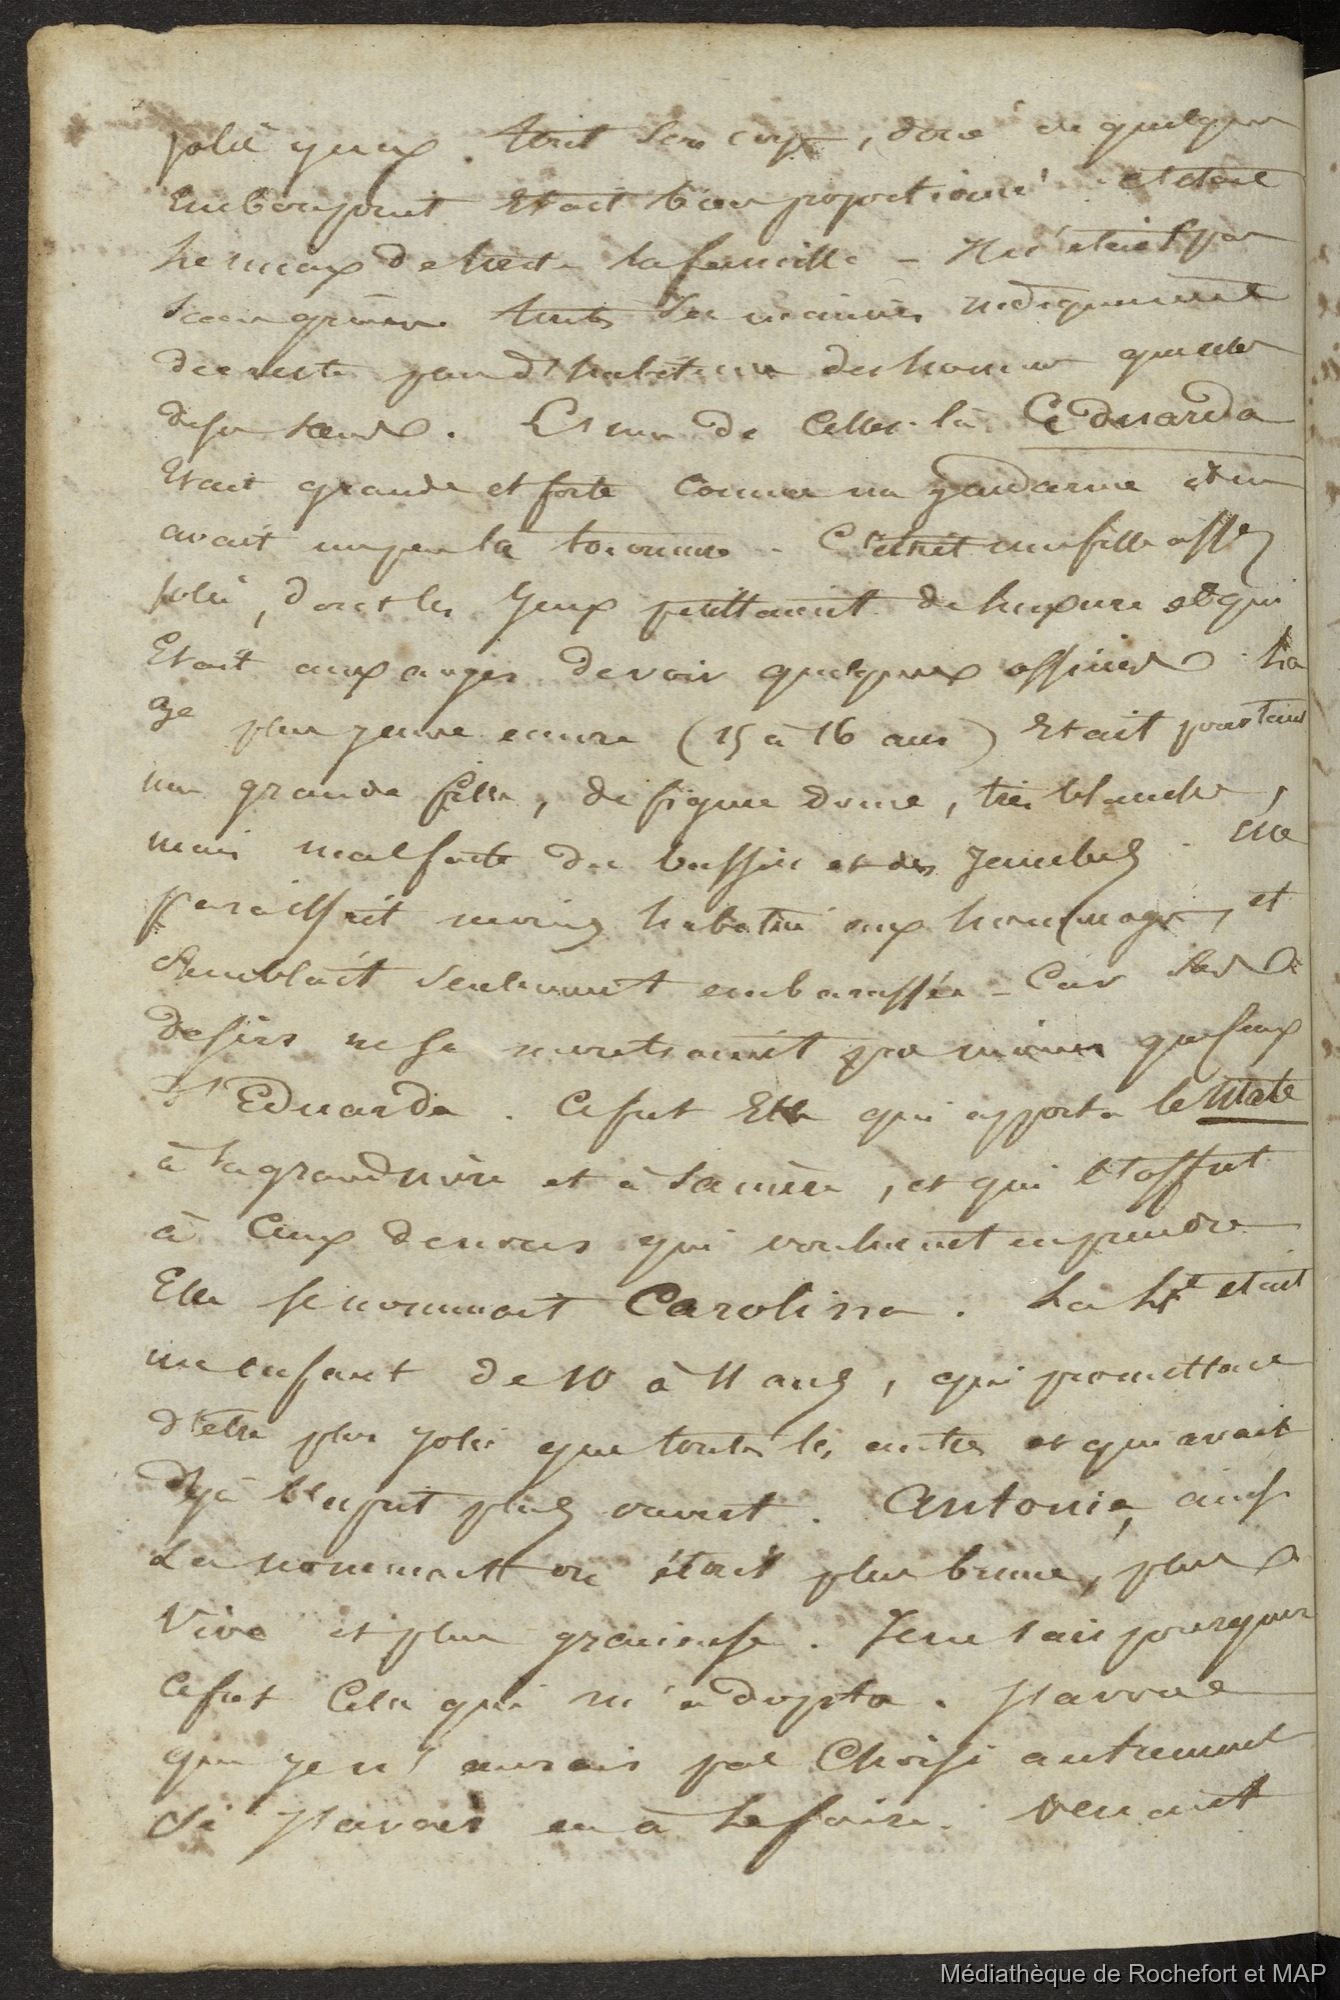 jolis yeux. Tout son corps, doué de quelque
embonpoint était bien proportionné. c'était
le mieux de toute la famille – Il n'était pas
sans grâce toutes ses manières indiquaient
du reste peu d'habitude des hommes
. L'une de celles-là Eduarda
était grande et forte comme un gendarme et en
avait un peu la tournure. C'était une fille assez
jolie, dont les yeux petillaient de luxure et qui
était aux anges de voir quelques officiers. La
3e plus jeune encore (15 à 16 ans) était pourtant
une grande fille, de figure douce, très blanche,
mais mal faite du bassin et des jambes. Elle
paraissait moins habituée aux hommages, et
semblait seulement embarassée – Car ses
desirs ne se montraient pas moins que ceux
d'Eduarda. Ce fut Elle qui apporta le Mate
à la grand mère et à sa mère, et qui l'offrit
à Ceux de nous qui voulurent en prendre
Elle se nommait Carolina. La 4e était
une enfant de 10 à 11 ans, qui promettait
d'être plus jolie que toutes les autres et qui avait
déjà l'esprit plus ouvert. Antonia, ainsi
la nommait on était plus brune, plus
vive et plus gracieuse. Je ne sais pourquoi
ce fut Celle qui m'adopta. J'avoue
que je n'aurais pas Choisi autrement
si j'avais eu à le faire. Venait
Médiathèque de Rochefort et MAP